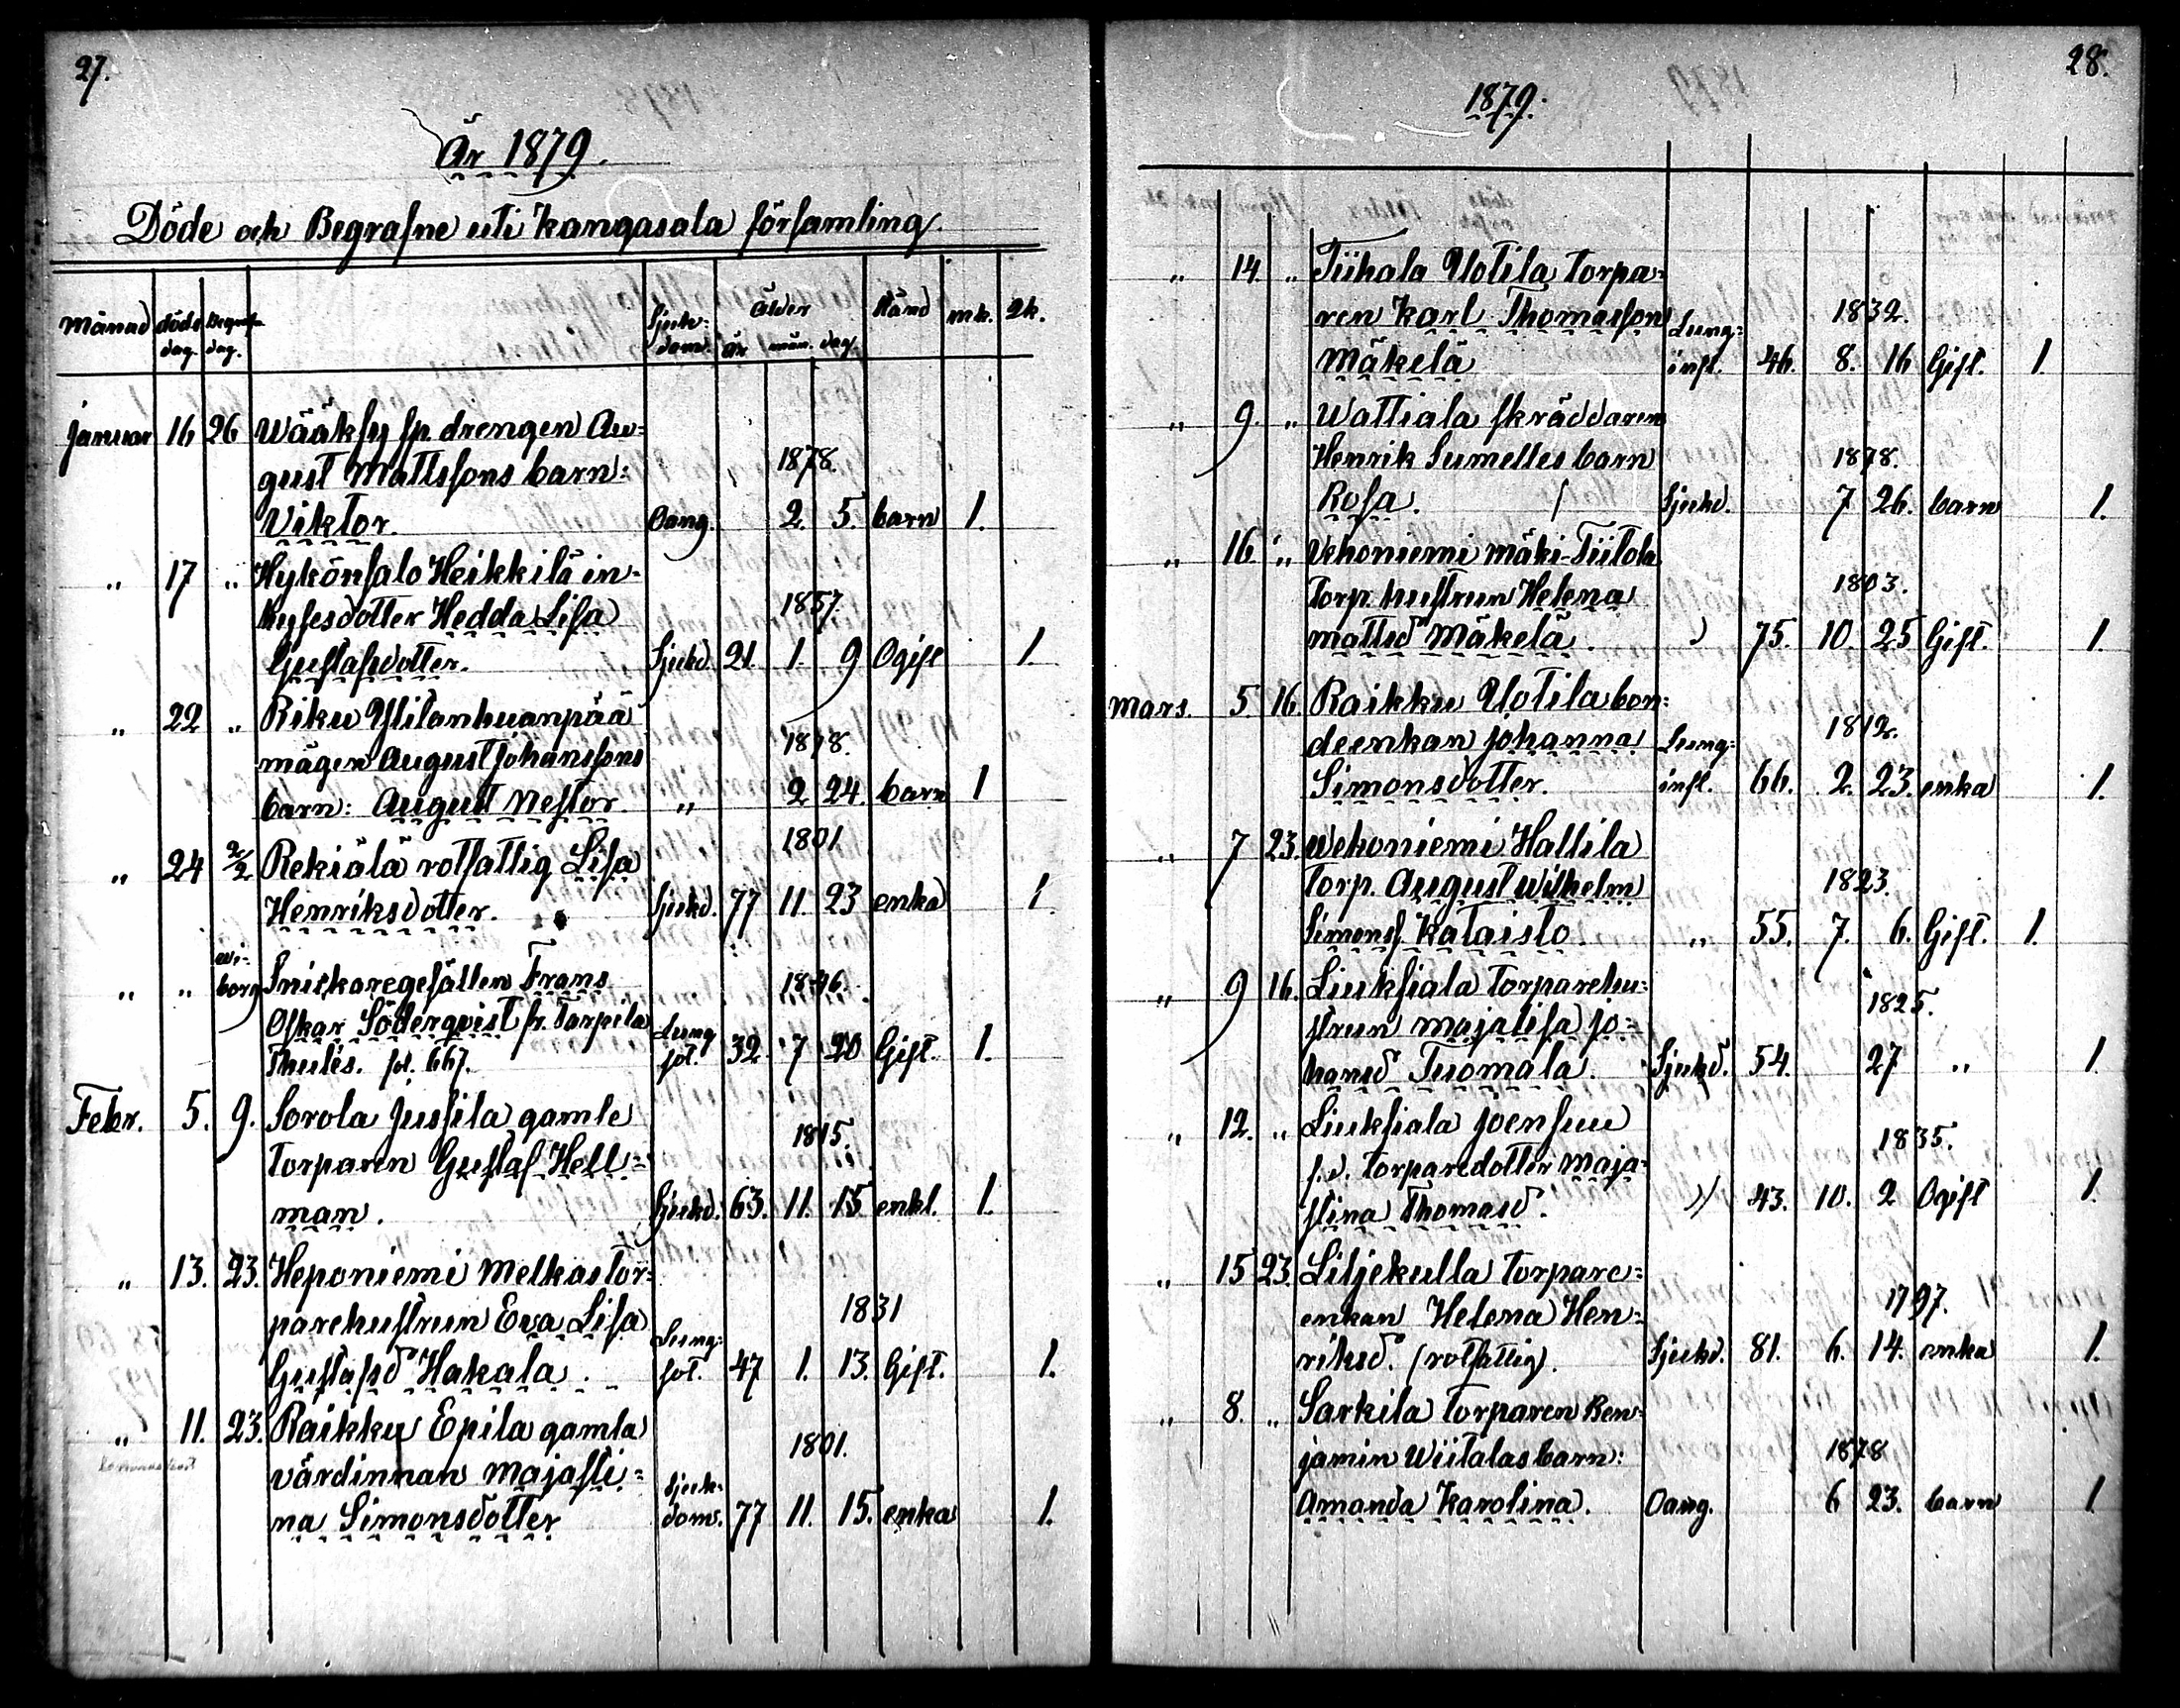 27.
År 1879.
Döde och Begrafne uti Kangasala församling.
Månad döds dag. Begrafn. dag. Sjuk-dom. Ålder år mån. dag. Stånd mk. qk.
Januar 16 26 Wääksy sp. drengen Au-
gust Mattssons barn: 1878.
Viktor. Oang. 2. 5. barn 1.
" 17 " Hykönsalo Heikkilä in-
hysesdotter Hedda Lisa 1857.
Gustafsdotter. Sjukd. 21. 1. 9 Ogift 1.
" 22 " Riku Ylilanhuanpää
mågen August Johanssons 1878.
barn: August Nestor " 2 24. barn 1
" 24 2/2 Rekiälä rotfattig Lisa 1801
Henriksdotter. Sjukd. 77 11. 23 enka 1.
" " Wi-borg Snickaregesällen Frans 1846.
Oskar Söderqvist fr. Tarpila
Thulés. fol. 667. Lung sot. 32 7 20 Gift. 1.
Febr. 5. 9. Sorola Jussila gamle
torparen Gustaf Hell- 1815.
man. Sjukd. 63. 11. 15 enkl. 1.
" 13. 23. Heponiemi Melkas tor-
parehustrun Eva Lisa 1831
Gustafsd Hakala. Lung-sot. 47 1. 13. Gift. 1.
" 11. 23. Raikku Epila gamla
värdinnan Majasti- 1801.
na Simonsdotter Sjuk-dom. 77 11. 15. enka 1.
28.
1879.
" 14. " Tiihala Uotila torpa-
ren Karl Thomasson 1832.
Mäkelä Lung-infl. 46. 8. 16 Gift. 1.
" 9. " Wattiala skräddaren
Henrik Sumelles barn 1878.
Rosa. Sjukd. 7 26. barn 1.
" 16. " Vehoniemi mäki-Tiitola
torp. hustrun Helena 1803.
Mattsd Mäkelä. " 75. 10. 25 Gift. 1.
Mars. 5. 16. Raikku Uotila bon-
deenkan Johanna 1812.
Simonsdotter. Lung-infl. 66. 2. 23. enka 1.
" 7 23. Wehoniemi Hallila
torp. August Wilhelm 1823.
Simonss. Kataisto. " 55. 7. 6. Gift. 1.
" 9 16. Liuksiala torparehu-
strun Majalisa Jo- 1825.
hansd Tuomala. Sjukd. 54. 27 " 1.
" 12. " Liuksiala Joensuu
f.d. torparedotter Maja- 1835.
stina Thomasd. " 43. 10. 2 Ogift 1.
" 15 23. Liljekulla torpare-
enkan Helena Hen- 1797.
riksd. (rotfattig). Sjukd. 81. 6. 14. enka 1.
" 8. " Sarkila torparen Ben-
jamin Wiitalas barn: 1878
Amanda Karolina. Oang. 6 23. barn 1